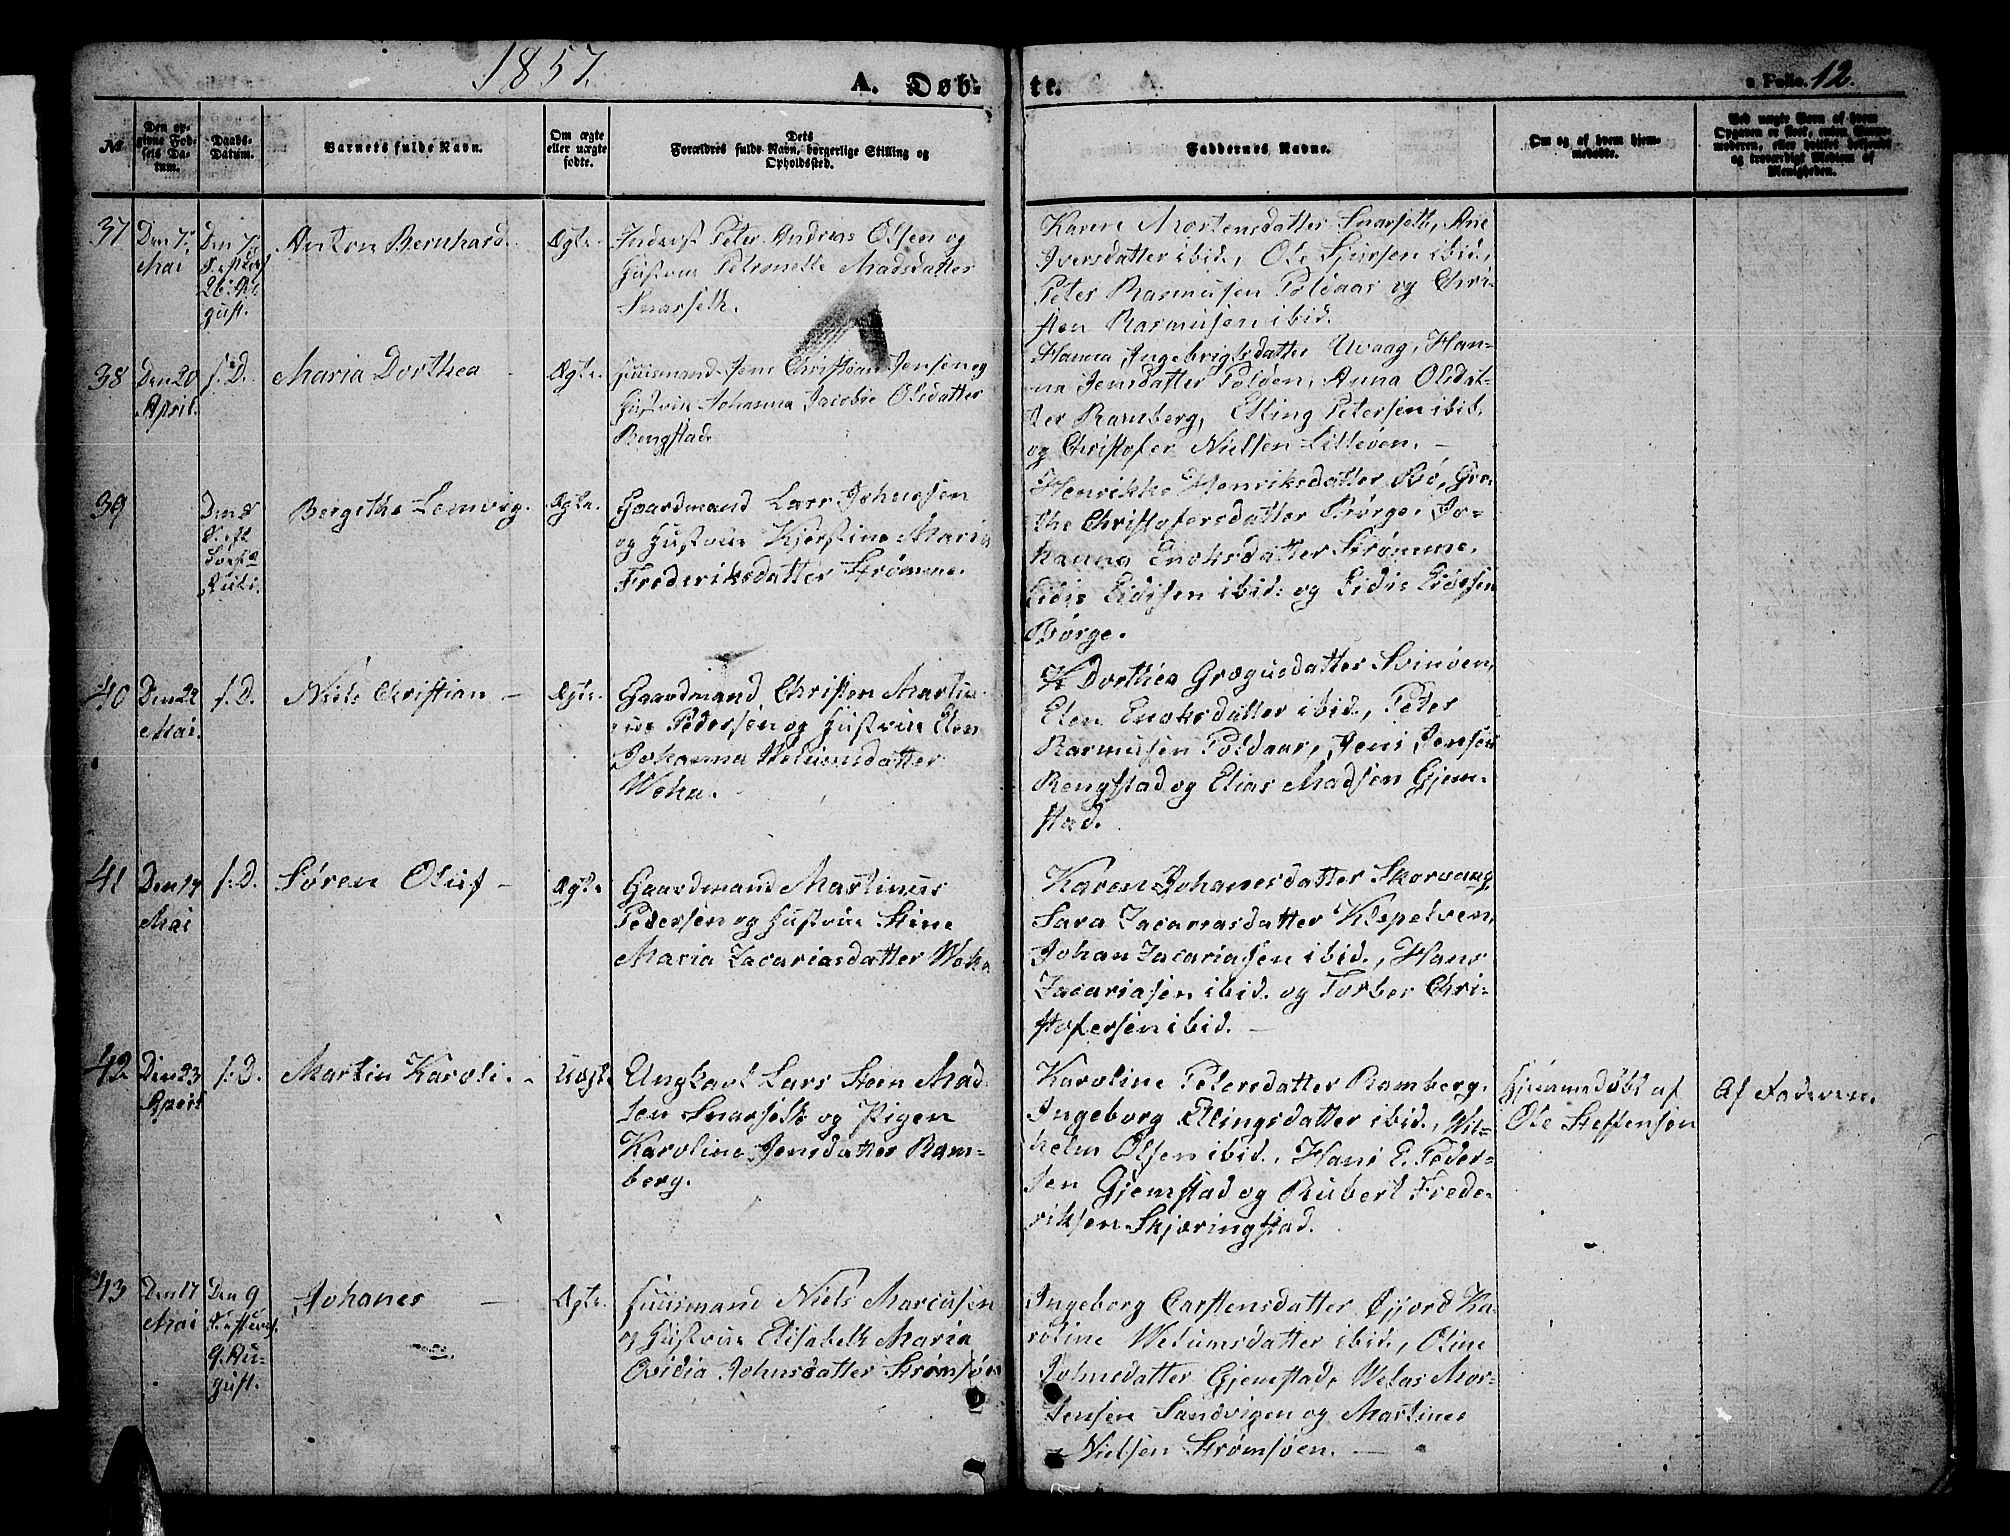 1857.
A. Døb-
te.
Folio. 12.
№
Den op-
givne Fød-
sels Da-
tum.
Daabs-
Datum.
Barnets fulde Navn.
Om ægte
eller uægte
fødte.
Dets
Forældres fulde Navn, borgerlige Stilling og
Opholdssted.
Faddernes Navne.
Om og af hvem hjem-
medøbt.
Ved uægte Børn af hvem
Opgaven er skeet, enten Barne-
moderen, eller hvilket bekjendt
og troværdigt Medlem af
Menigheden.
37
Den 7
Mai
Den 7
26 Au
gust.
Anton Bernhard.
Ægte.
Inderst Peter Andreas Olsen og
Hustrue Petronelle Madsdatter
Snarseth.
Karen Mortensdatter Snarseth, Ane
Iversdatter ibid., Ole Sjursen ibid.,
Peter Rasmusen Poldaas og Chri-
sten Rasmusen ibid.
38
Den 20
April.
s. D.
Maria Dorthea -
Ægte.
Huusmand Jens Christian Jensen og
Hustrue Johanna Jacobie Olsdatter
Rengstad.
Hanna Ingebrigtsdatter Uvaag, Han-
na Jensdatter Polden, Anna Olsdat-
ter Ramberg, Elling Petersen ibid,
og Christofer Nielsen Litleøen. -
39
Bergithe Lemvig.
Ægte.
Gaardmand Lars Johnsen
og Hustrue Kjerstine Maria
Frederiksdatter Strømme.
Henrikke Henriksdatter Bø, Gre-
the Christofersdatter Børge, Jo-
hanna Enoksdatter Strømme,
Eidis Eidisen ibid. og Eidis Eidesen
Børge.
40
Den 22
Mai.
s. D.
Niels Christian -
Ægte.
Gaardmand Christen Martin-
us Pedersen og Hustrue Elen
Johanna Velumsdatter
Woka.
Dorthea Grægusdatter Svinøen,
Elen Enoksdatter ibid., Peder
Rasmusen Poldaas, Jens Jensen
Rengstad og Elias Madsen Gjem-
stad.
41
Den 19
Mai
s. D.
Søren Oluf -
Ægte
Gaardmand Martinus
Pedersen og Hustrue Stine
Maria Zacariasdatter Woka
Karen Johanesdatter Skorvaag,
Sara Zacariasdatter Klepelven,
Johan Zacariasen ibid., Hans
Zacariasen ibid. og Torber Chri-
stofersen ibid. -
42
Den 23
April
s. D.
Martin Karoli. -
Uægte.
Ungkarl Lars Stein Mad-
sen Snarseth og Pigen
Karoline Jensdatter Ram-
berg.
Karoline Petersdatter Ramberg,
Ingeborg Ellingsdatter ibid., Wil-
helm Olsen ibid., Hans E. Peder-
sen Gjemstad og Rubert Frede-
riksen Skjæringstad.
Hjemmedøbt af
Ole Steffensen
Af Faderen.
43
Den 17
Mai
Den 9
9. Au-
gust.
Johanes -
Ægte.
Huusmand Niels Marcusen
og Hustrue Elisabeth Maria
Ovidia Johnsdatter Strømsøen
Ingeborg Carstensdatter Fjord, Ka-
roline Welumsdatter ibid., Oline
Johnsdatter Gjemstad, Welas Mor-
tensen Sandvigen og Martines
Nielsen Strømsøen. -